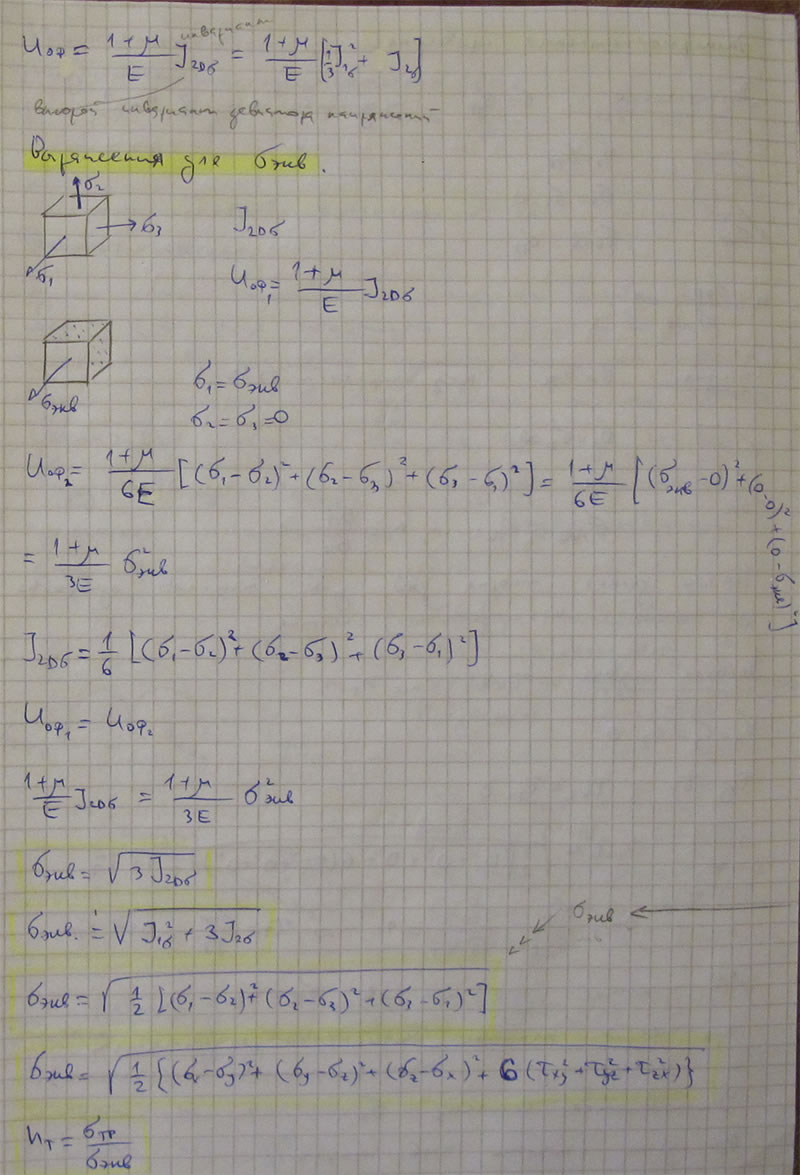 инвариант
U_оф = (1+μ)/E J_2Dσ = (1+μ)/E [1/3 J_1σ² + J_2σ]
второй инвариант девиатора напряжений
Выражения для σ_экв.
σ_2
σ_3
σ_1
J_2Dσ
U_оф₁ = (1+μ)/E J_2Dσ
σ_экв
σ_1 = σ_экв
σ_2 = σ_3 = 0
U_оф₂ = (1+μ)/6E [(σ_1 - σ_2)² + (σ_2 - σ_3)² + (σ_3 - σ_1)²] = (1+μ)/6E [(σ_экв - 0)² + (0 - 0)² + (0 - σ_экв)²]
= (1+μ)/3E σ²_экв
J_2Dσ = 1/6 [(σ_1 - σ_2)² + (σ_2 - σ_3)² + (σ_3 - σ_1)²]
U_оф₁ = U_оф₂
(1+μ)/E J_2Dσ = (1+μ)/3E σ²_экв
σ_экв = √(3 J_2Dσ)
σ_экв. = √(J_1σ² + 3 J_2σ)
σ_экв
σ_экв = √(1/2 [(σ_1 - σ_2)² + (σ_2 - σ_3)² + (σ_3 - σ_1)²])
σ_экв = √(1/2 {(σ_x - σ_y)² + (σ_y - σ_z)² + (σ_z - σ_x)² + 6 (τ_xy² + τ_yz² + τ_zx²)})
n_T = σ_тр/σ_экв